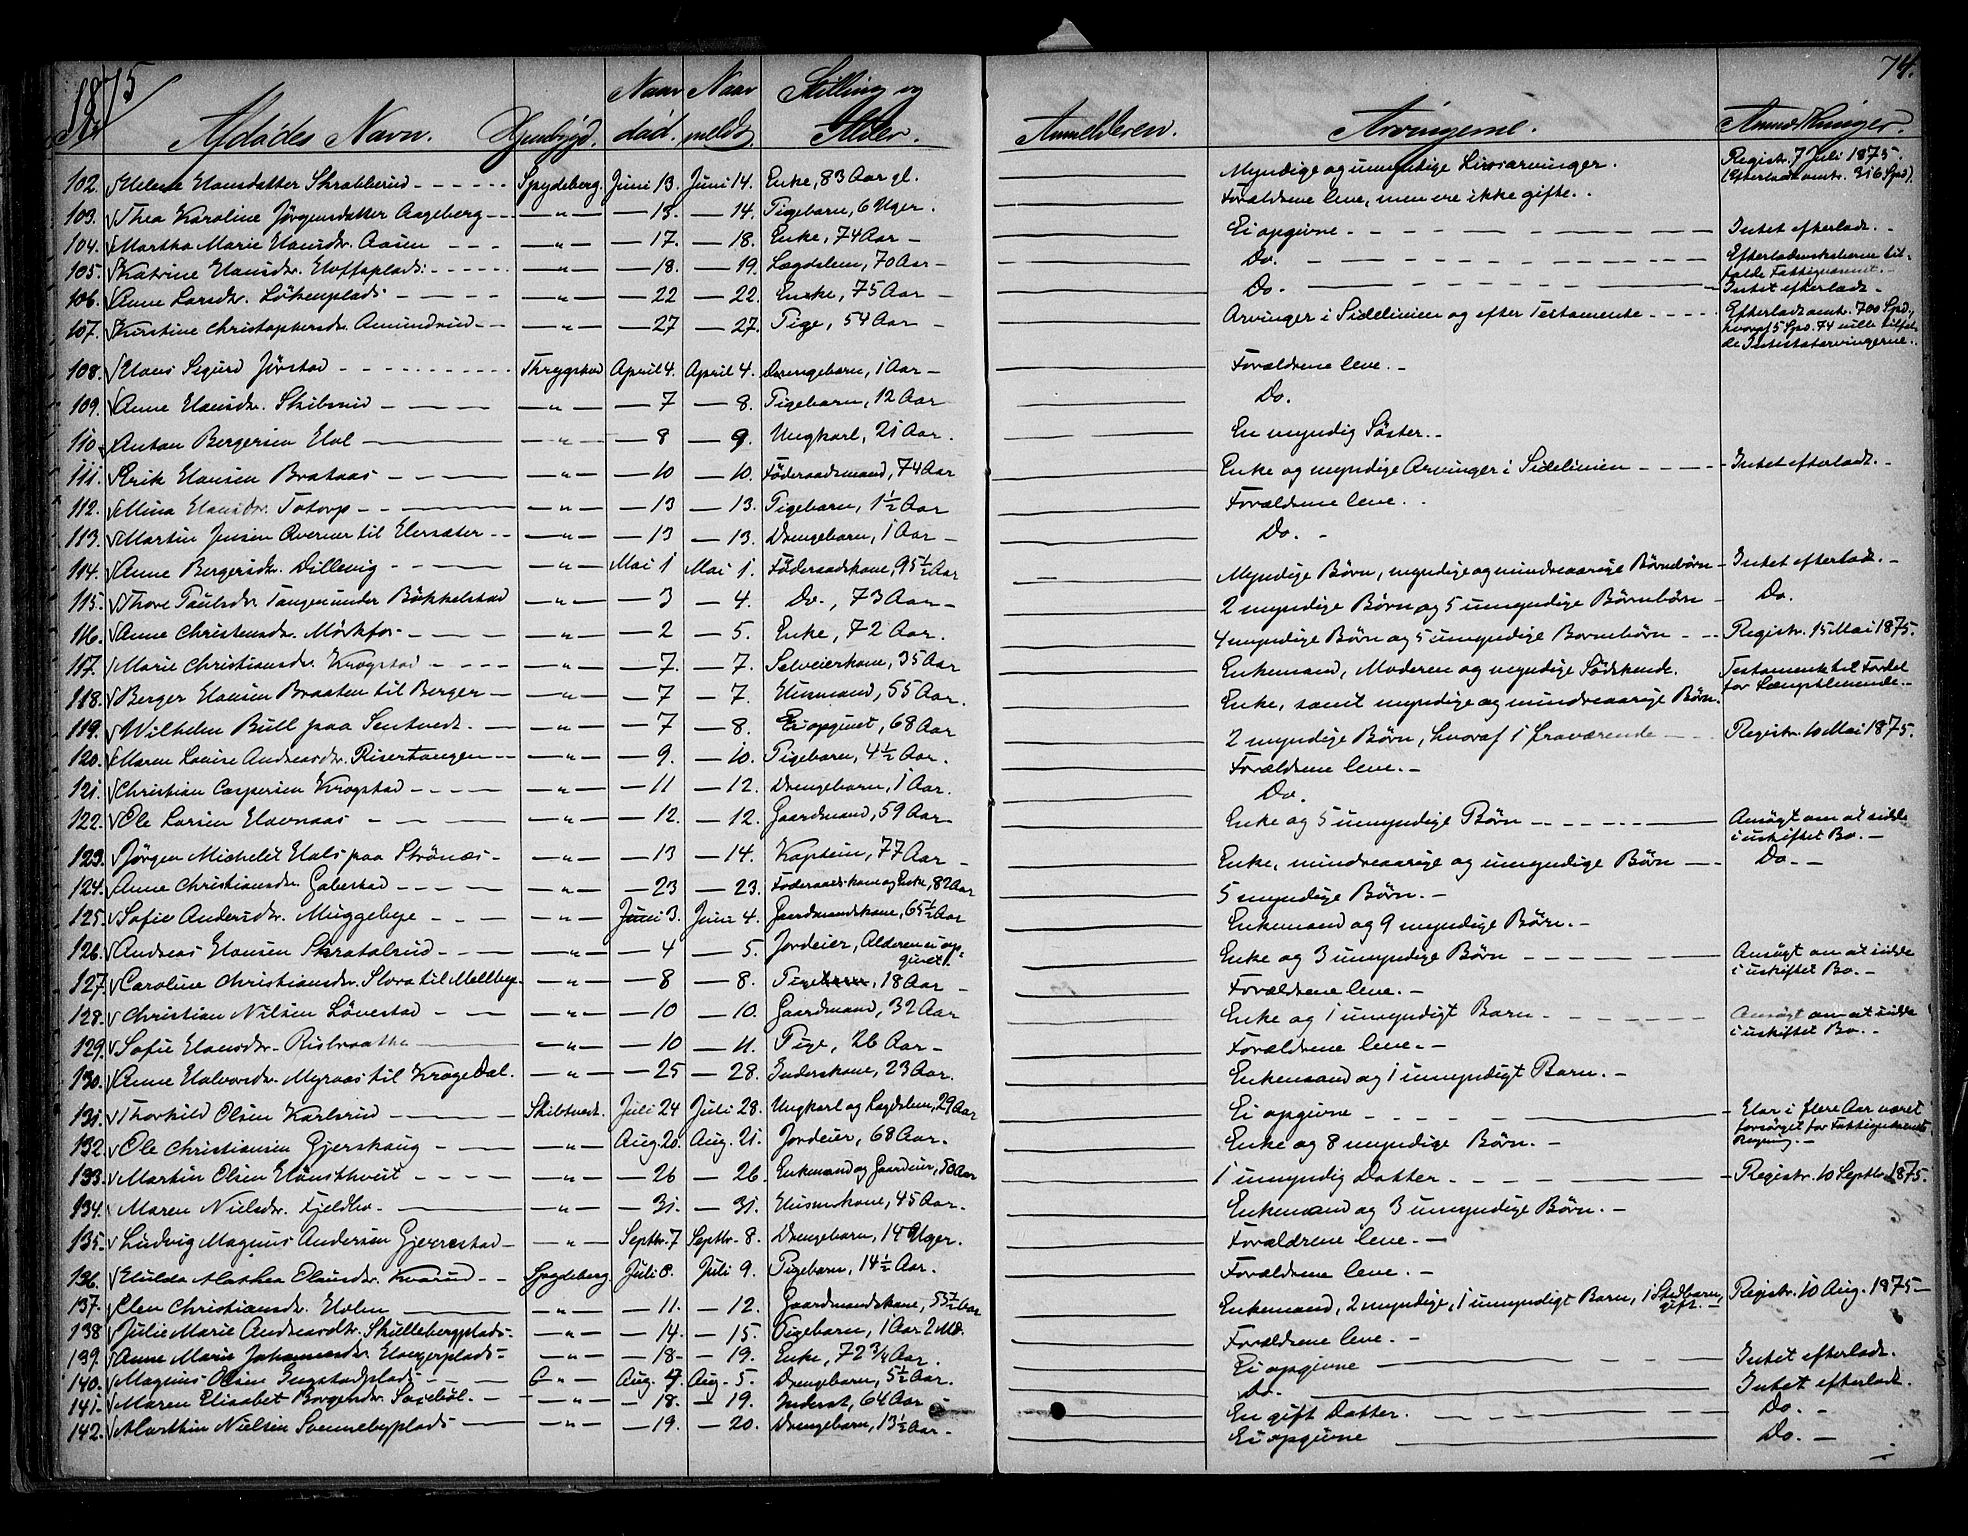 1875
74.
No
Afdødes Navn. Hjembygd. Naar død. Naar meldt. Stilling og Alder. Anmelderen. Arvingerne. Anmærkninger.
102. Helene Hansdatter Skrabberud - Spydeberg. Juni 13. Juni 14. Enke, 83 Aar gl. Myndige og umyndige Livsarvinger. Registr. 7 Juli 1875. (Efterladt omtr. 316 Spd).
103. Thea Karoline Jørgensdatter Aageberg - " - 13. - 14. Pigebarn, 6 Uger. Forældrene leve, men ere ikke gifte.
104. Martha Marie Hansdr. Aasen - " - 17. - 18. Enke, 74 Aar - Ei opgivne - Intet efterladt. -
105. Katrine Hansdr. Hoffsplads: - " - 18. - 19. Lægdslem, 70 Aar - Do. - Efterladenskaberne til-
falde Fattigvæsenet. -
106. Anne Larsdr. Løkenplads - " - 22 - 22. Enke, 75 Aar - Do. - Intet efterladt -
107. Kirstine Christophersdr. Amundrud - " - 27 - 27. Pige, 54 Aar - Arvinger i Sidelinien og efter Testamente - Efterladt omtr. 700 Spd.,
hvoraf 5 Spd. 74 ville tilfal-
de Intestatarvingerne.
108. Hans Sigurd Jørstad - Thrygstad April 4. April 4. Drengebarn, 1 Aar - Forældrene leve. -
109. Anne Hansdr. Skibsrud - " - 7 - 8. Pigebarn, 12 Aar Do.
110. Anton Bergersen Hol - " - 8 - 9. Ungkarl, 21 Aar. En myndig Søster. -
111. Erik Hansen Brataas - " - 10 - 10. Føderaadsmand, 74 Aar Enke og myndige Arvinger i Sidelinien - Intet efterladt. -
112. Mina Hansdr. Totorp - " - 13 - 13. Pigebarn, 1½ Aar Forældrene leve.
113. Martin Jensen Qverner til Hersæter - " - 13 - 13. Drengebarn, 1 Aar - Do. -
114. Anne Bergersdr. Dillevig - " - Mai 1 Mai 1. Føderaadskone, 95½ Aar Myndige Børn, myndige og mindreaarige Børnebørn - Intet efterladt. -
115. Thore Paulsdr. Tangen under Bøkkelstad - " - 3 - 4. Do., 73 Aar - 2 myndige Børn og 5 umyndige Børnebørn - Do.
116. Anne Christensdr. Mörkfos - " - 2 - 5. Enke, 72 Aar. 4 myndige Børn og 5 umyndige Børnebørn - Registr. 15 Mai 1875.
117. Marie Christiansdr. Krogstad - " - 7. - 7. Selveierkone, 35 Aar Enkemand, Moderen og myndige Södskende. Testamente til Fordel
for Længstlevende. -
118. Berger Hansen Braaten til Berger - " - 7 - 7. Husmand, 55 Aar. Enke, samt myndige og mindreaarige Børn.
119. Wilhelm Bull paa Sentvedt. - " - 7 - 8. Ei opgivet, 68 Aar 2 myndige Børn, hvoraf 1 fraværende - Registr. 10 Mai 1875.
120. Maren Lovise Andreasdr. Risertangen - " - 9. - 10. Pigebarn, 4½ Aar. Forældrene leve. -
121. Christian Caspersen Krogstad - " - 11 - 12. Drengebarn, 1 Aar. Do.
122. Ole Larsen Havnaas - " - 12. - 12. Gaardmand, 59 Aar - Enke og 5 umyndige Børn - Ansøgt om at sidde
i uskiftet Bo. -
123. Jørgen Michelet Hals paa Strønæs - " - 13 - 14. Kaptein, 77 Aar - Enke, mindreaarige og umyndige Børn - Do. -
124. Anne Christiansdr. Gaberstad - " - 23 - 23. Føderaadskone og Enke, 82 Aar 5 myndige Børn. -
125. Sofie Andersdr. Muggebye - " - Juni 3. Juni 4. Gaardmandskone, 65½ Aar Enkemand og 9 myndige Børn. -
126. Andreas Hansen Skratalsrud - " - 4 - 5. Jordeier, Alderen ei op-
givet. Enke og 3 umyndige Børn - Ansøgt om at sidde
i uskiftet Bo. -
127. Caroline Christiansdr. Slora til Mellbye - " - 8 - 8. Pigebarn, 18 Aar - Forældrene leve. -
128. Christian Nilsen Lövestad - " - 10 - 10. Gaardmand, 32 Aar Enke og 1 umyndigt Barn - Ansøgt om at sidde
i uskiftet Bo. -
129. Sofie Hansdr. Risbraathe - " - 10 - 11. Pige, 26 Aar - Forældrene leve. -
130. Anne Halvorsdr. Myraas til Krogedal. - " - 25 - 28. Inderstkone, 23 Aar. Enkemand og 1 umyndigt Barn. -
131. Thorkild Olsen Karlsrud - Skibtvedt. Juli 24 Juli 28. Ungkarl og Lægdslem, 29 Aar Ei opgivne - Har i flere Aar været
forsørget for Fattigvæsenets
Regning. -
132. Ole Christiansen Gjerskaug - " - Aug. 20. Aug. 21. Jordeier, 68 Aar. Enke og 8 myndige Børn. -
133. Martin Olsen Hönsthveit - " - 26 - 26. Enkemand og Gaardeier, 50 Aar 1 umyndig Datter - Registr. 10 Septbr. 1875.
134. Maren Nielsdr. Fjeldho. - " - 31. - 31. Husmskone, 45 Aar. Enkemand og 3 umyndige Børn. -
135. Ludvig Magnus Andersen Gjerrestad - " - Septbr. 7 Septbr. 8. Drengebarn, 14 Uger. Forældrene leve. -
136. Hulda Mathea Olausdr. Kvarud - Spydeberg. Juli 8. Juli 9. Pigebarn, 14½ Aar. Forældrene leve. -
137. Elen Christiansdr. Holen - " - 11. - 12. Gaardmandskone, Aar Enkemand, 2 myndige, 1 umyndigt Barn, 1 Stedbarn,
gift. - Registr. 10 Aug. 1875 -
138 Julie Marie Andreasdr. Skullebergplads - " - 14. - 15. Pigebarn, 1 Aar 2 Md. Forældrene leve. -
139. Anne Marie Johannesdr. Hougerplads - " - 18 - 19. Enke, 72¾ Aar. Ei opgivne - Intet efterladt.
140. Magnus Olsen Ingstadplads - " - Aug. 4. Aug. 5. Drengebarn, 5½ Aar. Do. - Intet efterladt.
141. Maren Elisabet Borgersdr. - " - 18. - 19. Inderst, 64 Aar En gift Datter. - Do. -
142. Marthin Nielsen Svennebyplads - " - 19. - 20. Drengebarn, 13½ Aar. - Ei opgivne - Do. -